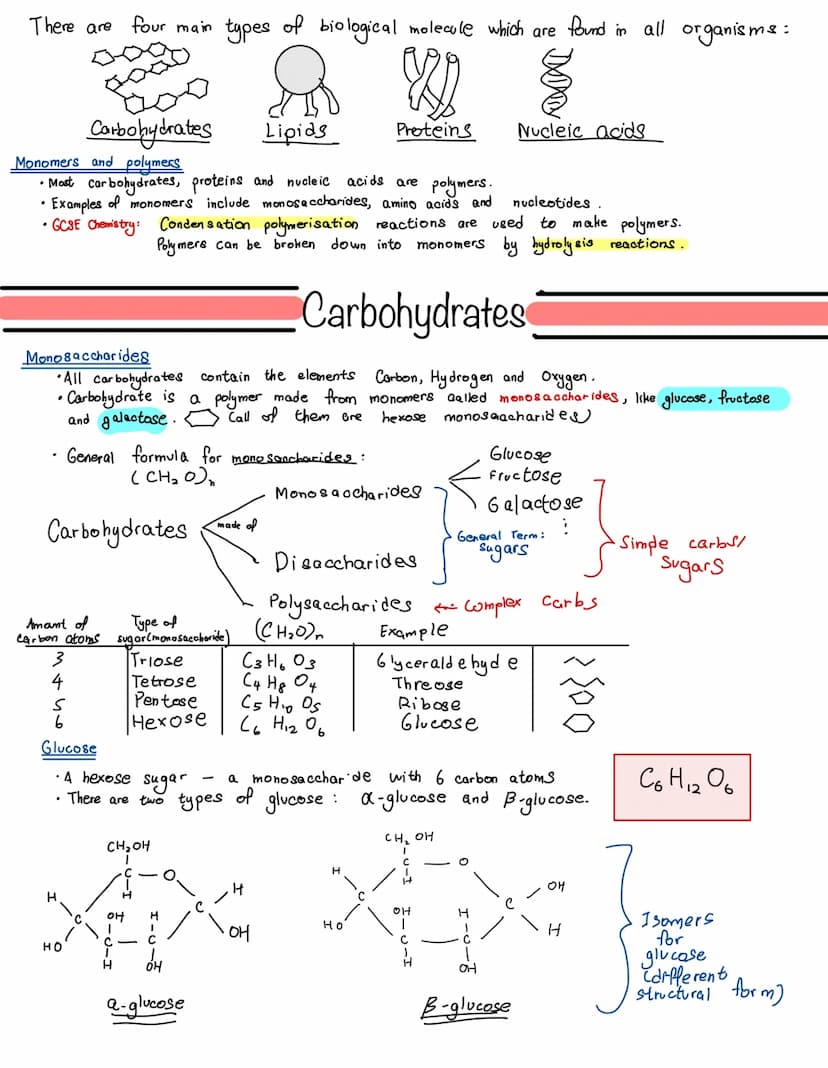 There are four main types of biological molecule which are found in all organisms:
Carbohydrates Lipids Proteins Nucleic acids
Monomers and polymers
• Most carbohydrates, proteins and nucleic acids are polymers.
• Examples of monomers include monosaccharides, amino acids and nucleotides.
• GCSE Chemistry: Condensation polymerisation reactions are used to make polymers.
Polymers can be broken down into monomers by hydrolysis reactions.
Carbohydrates
Monosaccharides
• All carbohydrates contain the elements Carbon, Hydrogen and Oxygen.
• Carbohydrate is a polymer made from monomers called monosaccharides, like glucose, fructose
and galactose. (all of them are hexose monosaccharides)
• General formula for monosaccharides:
(CH₂O)ₙ
Glucose
Fructose
Galactose
⋮
Monosaccharides
Carbohydrates made of
Disaccharides
Polysaccharides ← Complex carbs
General Term:
Sugars
Simple carbs/
Sugars
Amount of
carbon atoms
Type of
sugar(monosaccharide)
(CH₂O)ₙ
Example
3 Triose C₃H₆O₃ Glyceraldehyde
4 Tetrose C₄H₈O₄ Threose
5 Pentose C₅H₁₀O₅ Ribose
6 Hexose C₆H₁₂O₆ Glucose
Glucose
• A hexose sugar – a monosaccharide with 6 carbon atoms
• There are two types of glucose: α-glucose and β-glucose.
C₆H₁₂O₆
CH₂OH
C O
H
H H
C OH H C
HO C C OH
H OH
α-glucose
CH₂OH
C O
H
H OH
C OH H C
HO C C H
H OH
β-glucose
Isomers
for
glucose
(different
structural form)